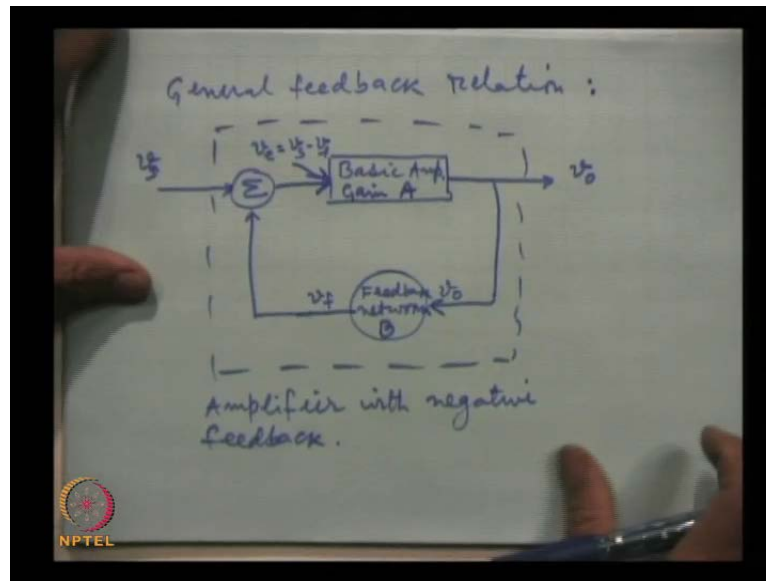 General feedback relation :
vs
ve = vs - vf
Σ
Basic Amp.
Gain A
vo
vf
Feedback
network
B
vo
Amplifier with negative
feedback.
NPTEL